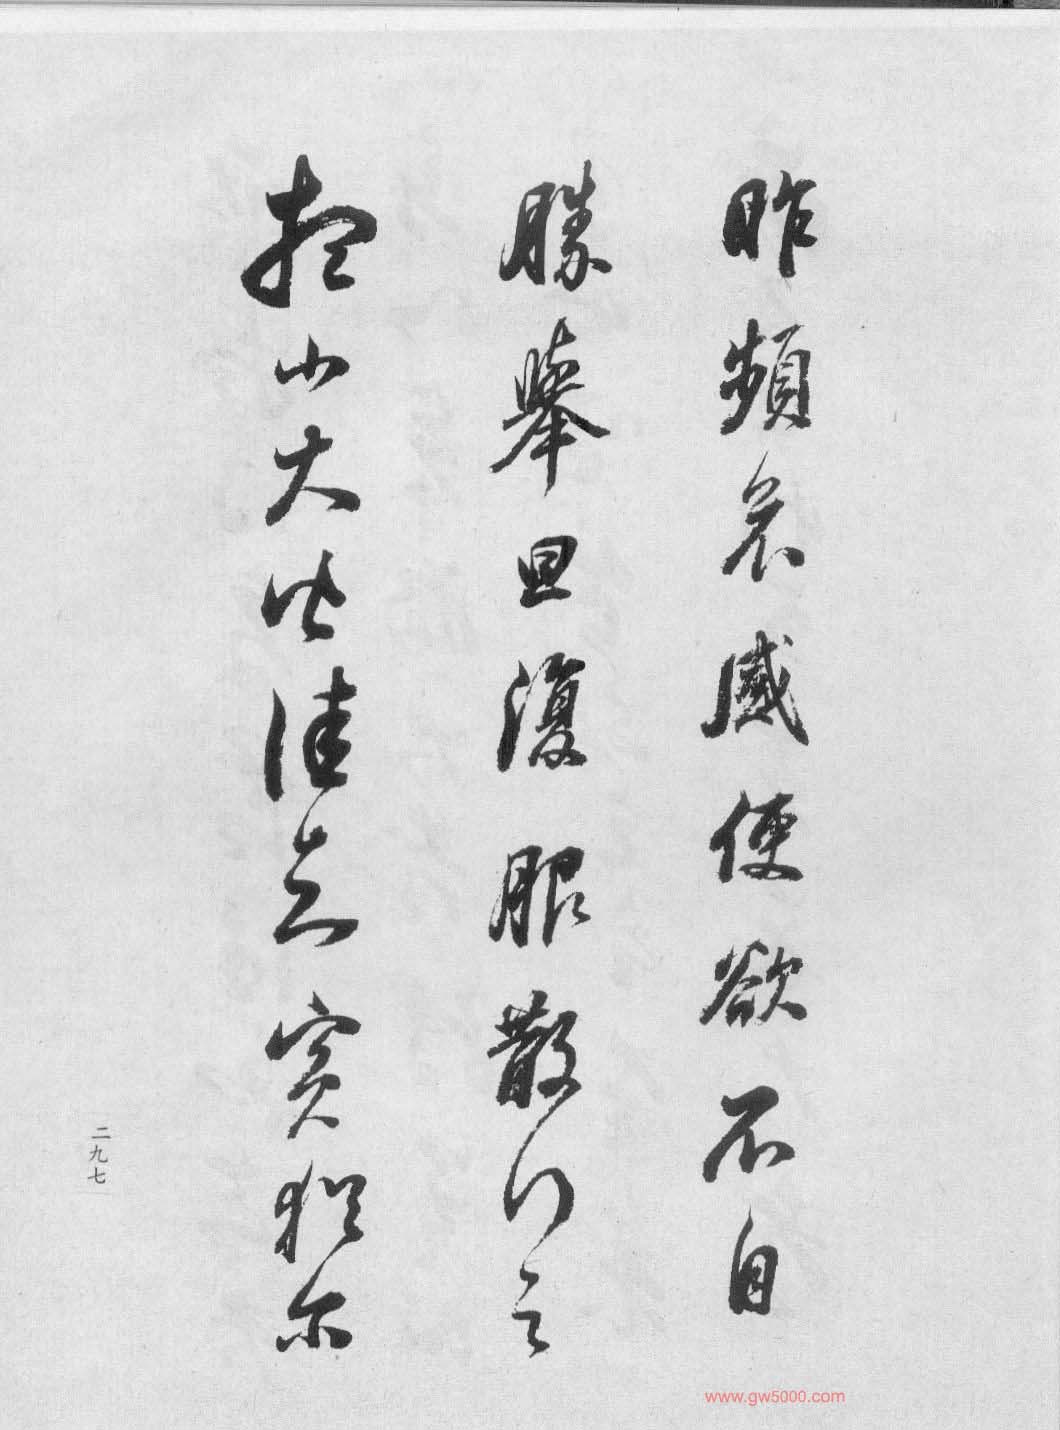 昨頻哀感便欲不自
勝舉旦復服散行之
想小大皆佳知賓猶尔
二九七
www.gw5000.com